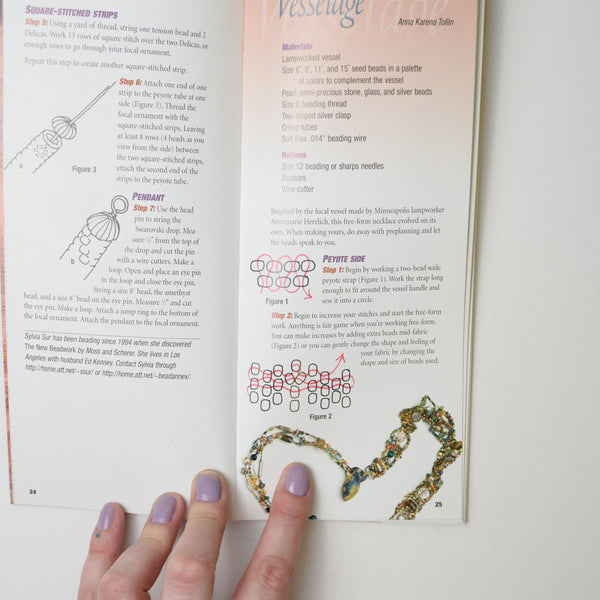 SQUARE-STITCHED STRIPS
Step 5: Using a yard of thread, string one tension bead and 2
Delicas. Work 13 rows of square stitch over the two Delicas, or
enough rows to go through your focal ornament.
Repeat this step to create another square-stitched strip.
Step 6: Attach one end of one
strip to the peyote tube at one
side (Figure 3). Thread the
focal ornament with the
square-stitched strips. Leaving
at least 8 rows (4 beads as you
view from the side) between
the two square-stitched strips,
attach the second end of the
strips to the peyote tube.
a
Figure 3
PENDANT
Step 7: Use the head
pin to string the
Swarovski drop. Mea-
sure ½" from the top of
the drop and cut the pin
with a wire cutters. Make a
loop. Open and place an eye pin
in the loop and close the eye pin.
String a size 8° bead, the amethyst
bead, and a size 8° bead on the eye pin. Measure ½" and cut
the eye pin. Make a loop. Attach a jump ring to the bottom of
the ornament. Attach the pendant to the focal ornament.
b
Sylvia Sur has been beading since 1994 when she discovered
The New Beadwork by Moss and Scherer. She lives in Los
Angeles with husband Ed Kenney. Contact Sylvia through
http://home.att.net/~ssur/ or http://home.att.net/~beadannex/.
24
Vesselage
Anna Karena Tollin
Materials
Lampworked vessel
Size 6°, 8°, 11°, and 15° seed beads in a palette
of colors to complement the vessel
Pearl, semi-precious stone, glass, and silver beads
Size B beading thread
Two-looped silver clasp
Crimp tubes
Soft Flex .014" beading wire
Notions
Size 12 beading or sharps needles
Scissors
Wire cutter
Inspired by the focal vessel made by Minneapolis lampworker
Annemarie Herrlich, this free-form necklace evolved on its
own. When making yours, do away with preplanning and let
the beads speak to you.
PEYOTE SIDE
Step 1: Begin by working a two-bead wide
peyote strap (Figure 1). Work the strap long
enough to fit around the vessel handle and
sew it into a circle.
Figure 1
Step 2: Begin to increase your stitches and start the free-form
work. Anything is fair game when you're working free-form.
You can make increases by adding extra beads mid-fabric
(Figure 2) or you can gently change the shape and feeling of
your fabric by changing the
shape and size of beads used.
Figure 2
25